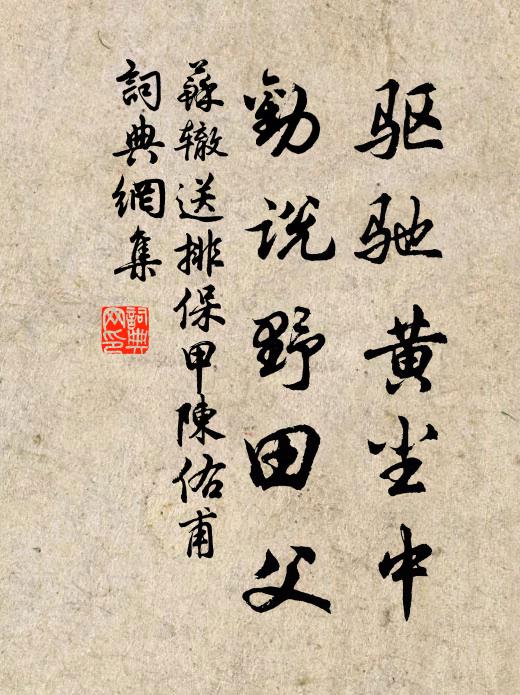 驱驰黄尘中
勸说野田父
蘇辙送排保甲陳佑甫
詞典網集
詞典網印